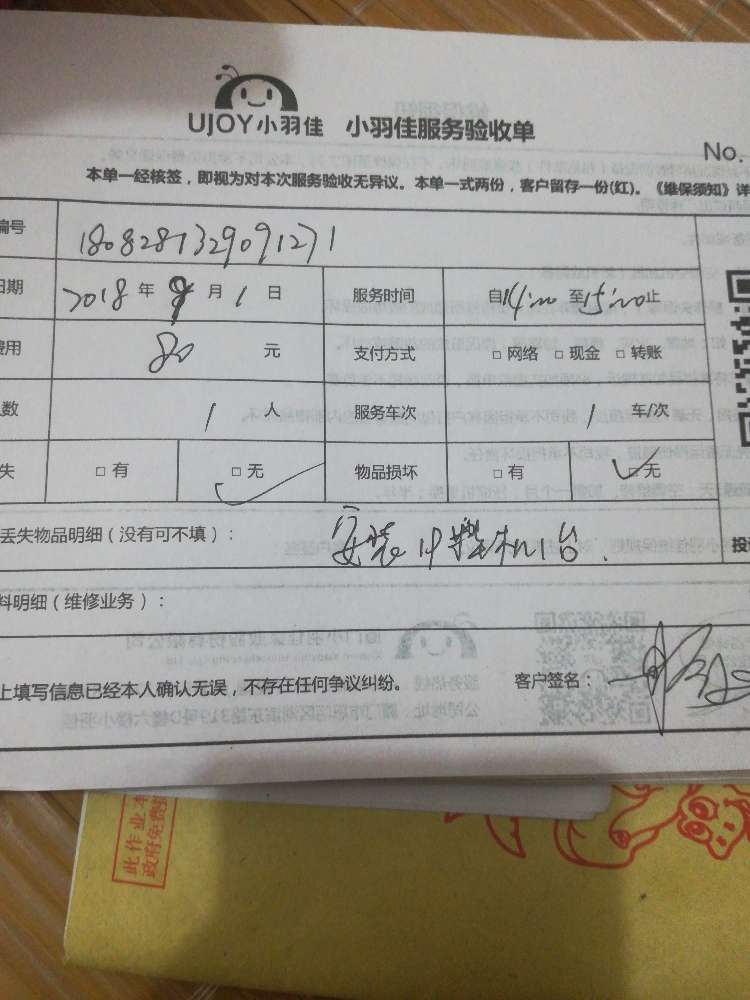 UJOY小羽佳 小羽佳服务验收单
No.
本单一经核签，即视为对本次服务验收无异议。本单一式两份，客户留存一份(红)。《维保须知》详
编号 1808281329091271
日期 2018 年 9 月 1 日 服务时间 自14:00 至15:00止
费用 80 元 支付方式 □ 网络 □ 现金 □ 转账
人数 1 人 服务车次 1 车/次
失 □ 有 □ 无 物品损坏 □ 有 □ 无
丢失物品明细（没有可不填）： 安装 机1台.
投
料明细（维修业务）：
上填写信息已经本人确认无误，不存在任何争议纠纷。 客户签名：
此作业本
政府免费